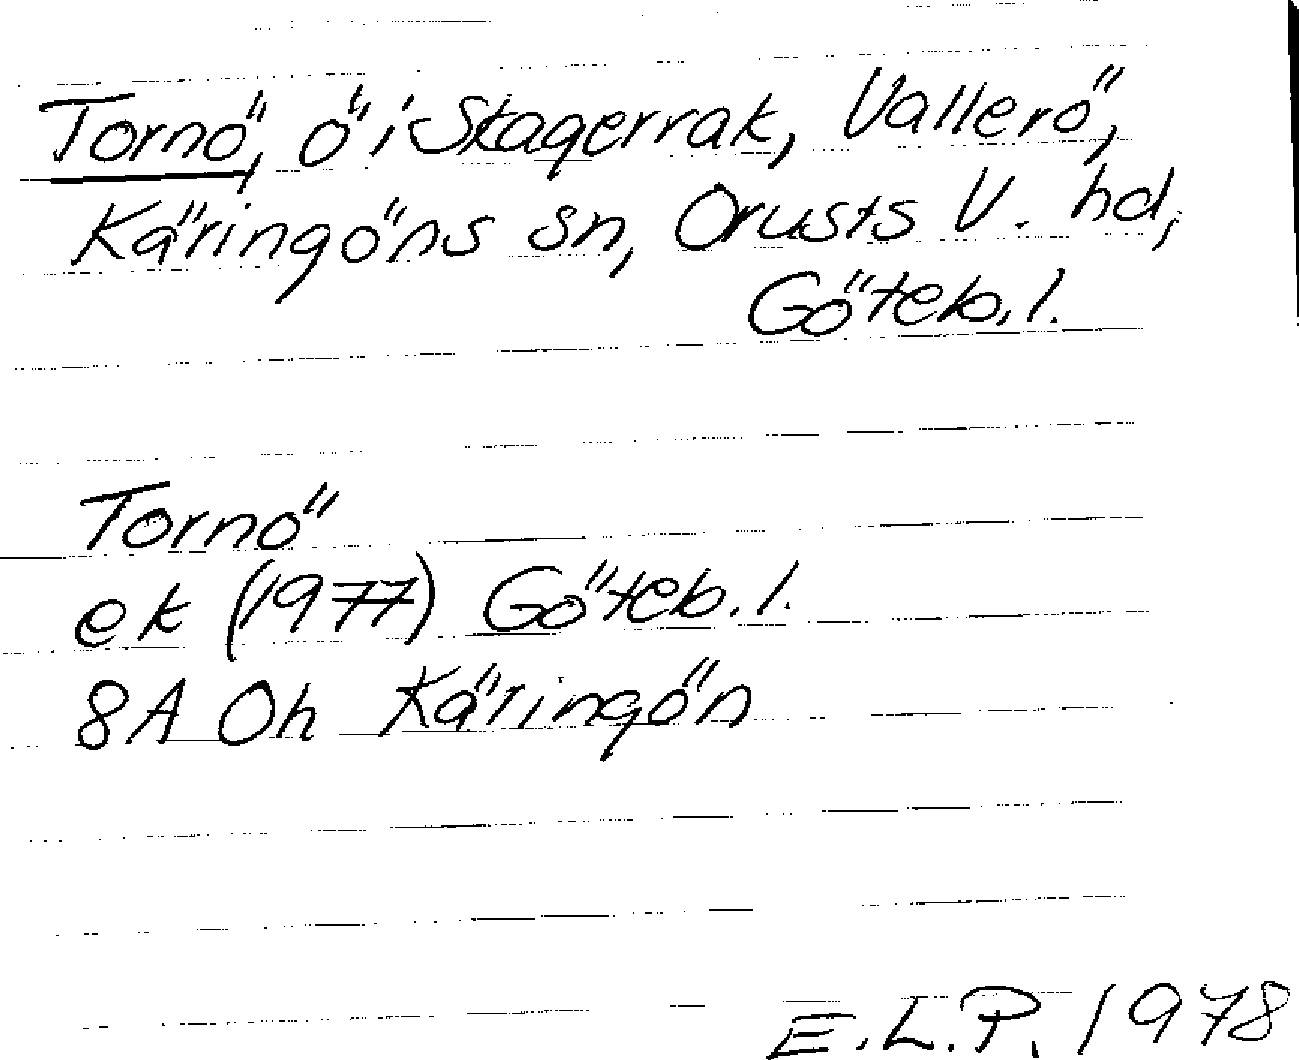 Tornö, ö i Skagerrak, Vallerö,
Käringöns sn, Orusts V. hd,
Göteb. l.
Tornö
ek (1977) Göteb. l.
8A Oh Käringön
E.L.P. 1978